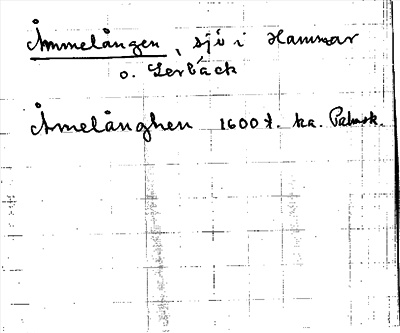 Åmmelången, sjö i Hammar
o. Lerbäck
Åmelånghen 1600 t. ka.